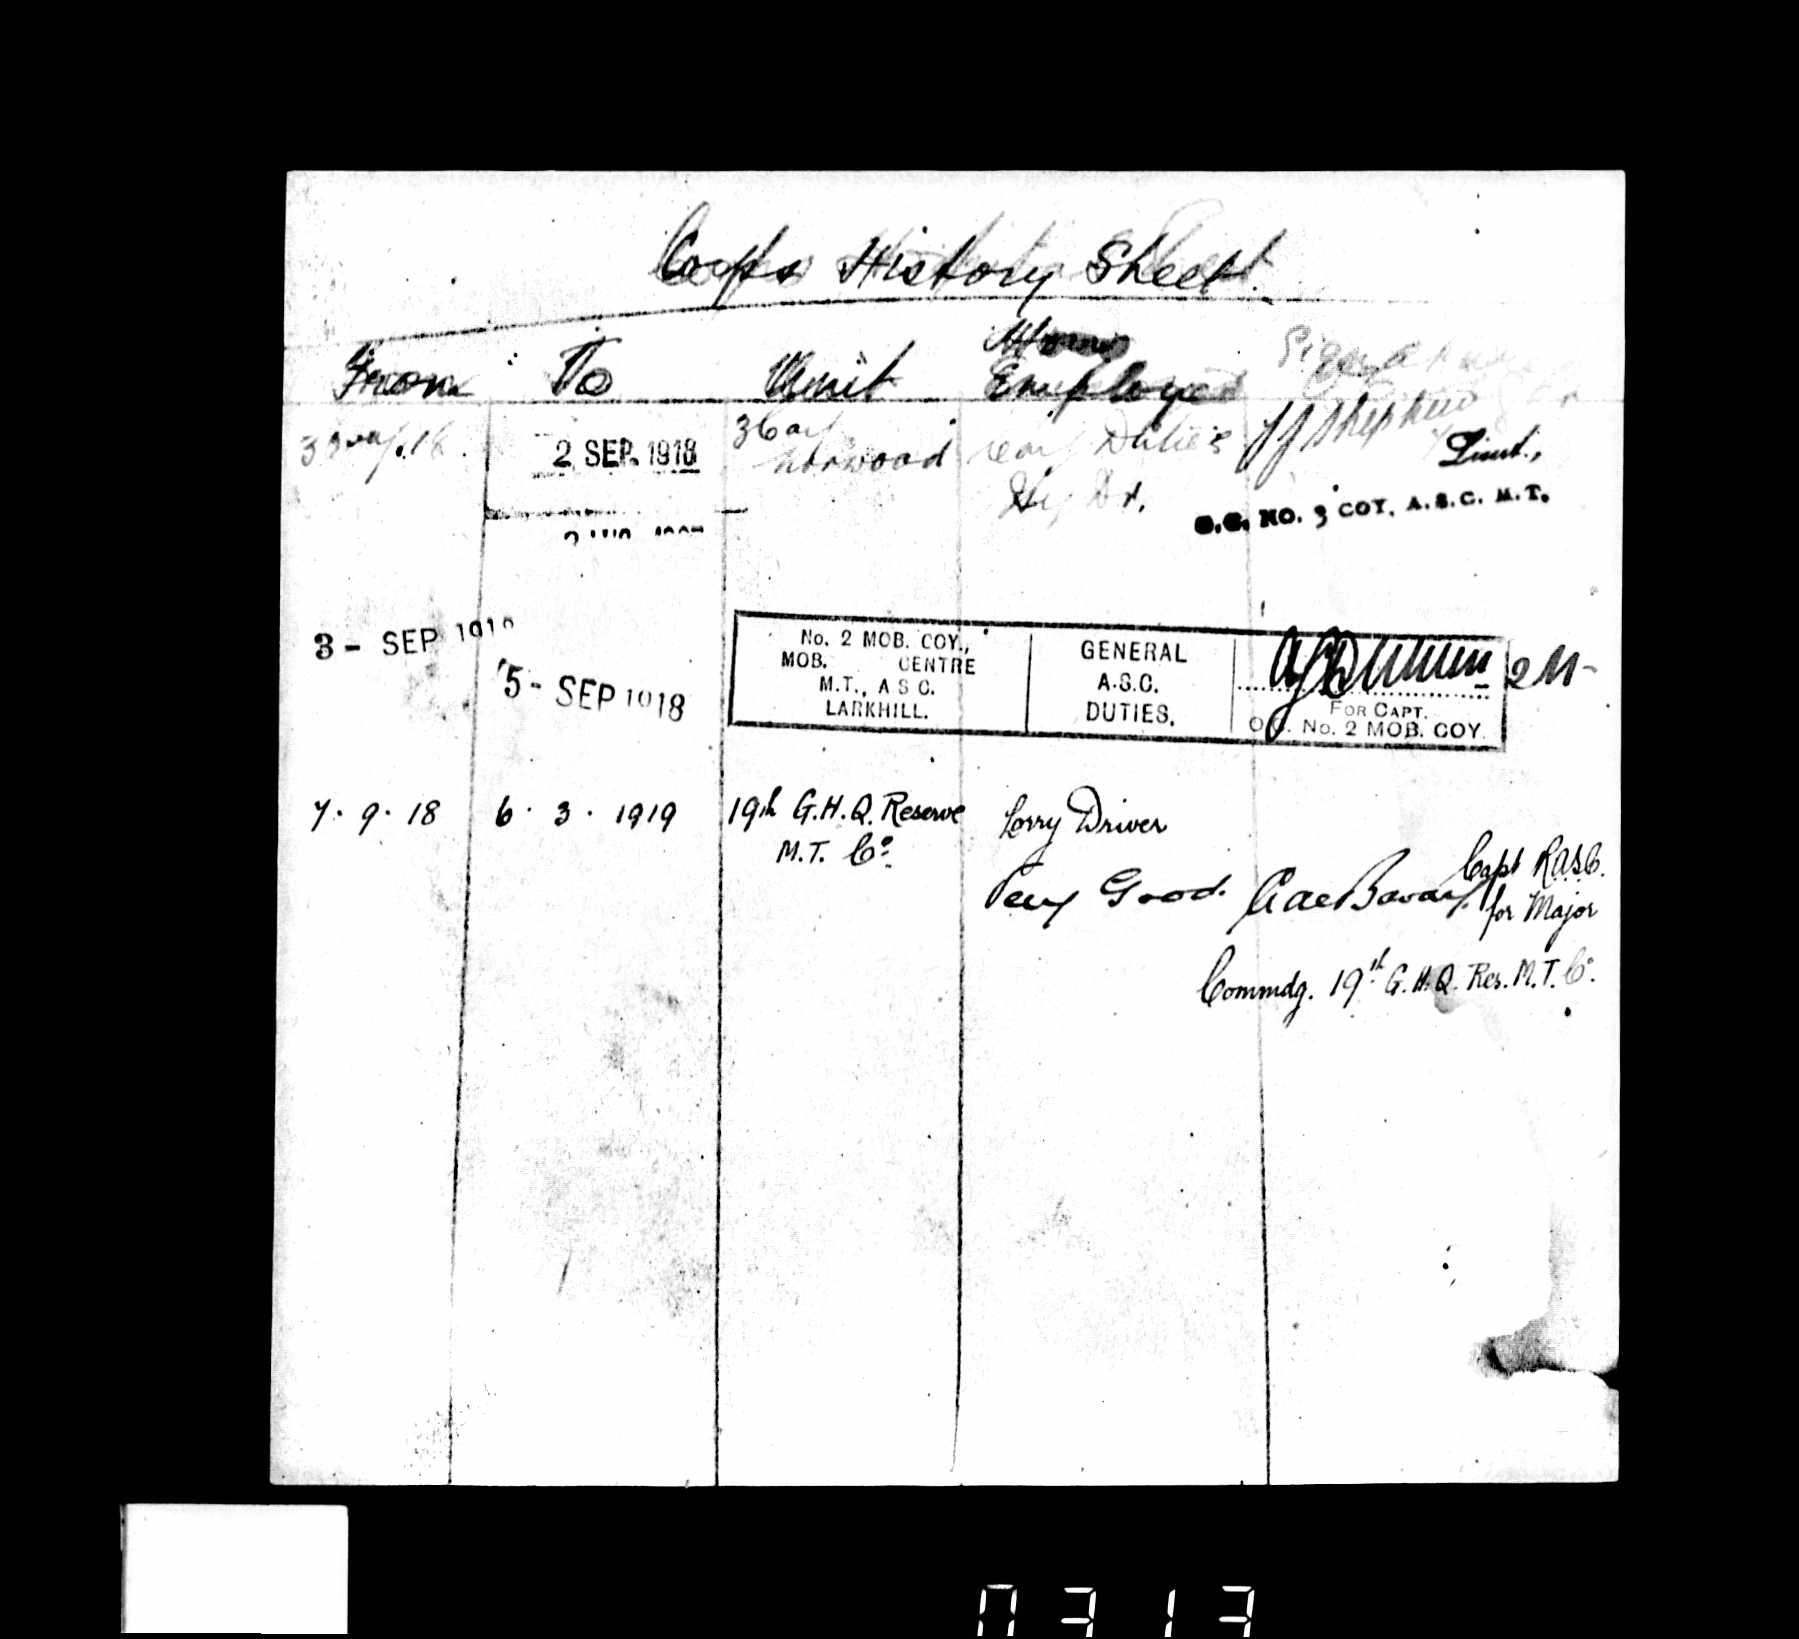 Corps History Sheet.
From To Unit How Employed Signature
2 SEP. 1918
Norwood Duties
Lieut.,
O.C. NO. 3 COY. A.S.C. M.T.
3 - SEP 1918
5 - SEP 1918
No. 2 MOB. COY.,
MOB. CENTRE
M.T., A S C.
LARKHILL.
GENERAL
A.S.C.
DUTIES.
FOR CAPT.
O.C. No. 2 MOB. COY.
7. 9. 18 6. 3. 1919 19th G.H.Q. Reserve Lorry Driver
M.T. Co.
Very Good. Capt R.A.S.C.
for Major
Commdg. 19th G.H.Q. Res. M.T. Co.
0313